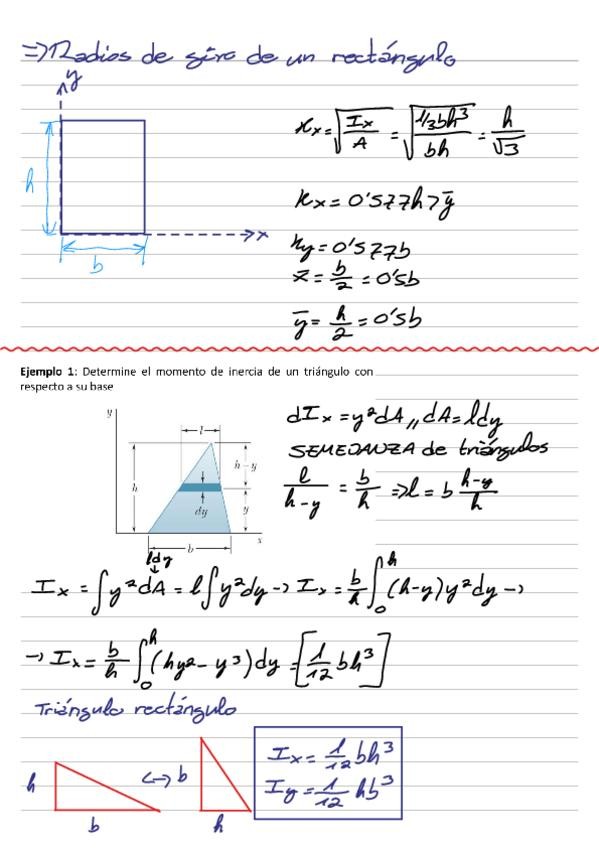 => Radios de giro de un rectángulo
y
h
b
x
Kx = √(Ix/A) = √(1/3bh³/bh) = h/√3
Kx = 0'577h > ȳ
Ky = 0'577b
x̄ = b/2 = 0'5b
ȳ = h/2 = 0'5b
Ejemplo 1: Determine el momento de inercia de un triángulo con
respecto a su base
y
l
h
h – y
y
dy
b
x
dIx = y²dA,, dA = ldy
SEMEJANZA de triángulos
l/(h-y) = b/h => l = b (h-y)/h
ldy
Ix = ∫y²dA = l∫y²dy -> Ix = b/h ∫₀ʰ (h-y)y²dy ->
-> Ix = b/h ∫₀ʰ (hy² - y³)dy = [1/12 bh³]
Triángulo rectángulo
h
b
<->
b
h
Ix = 1/12 bh³
Iy = 1/12 hb³